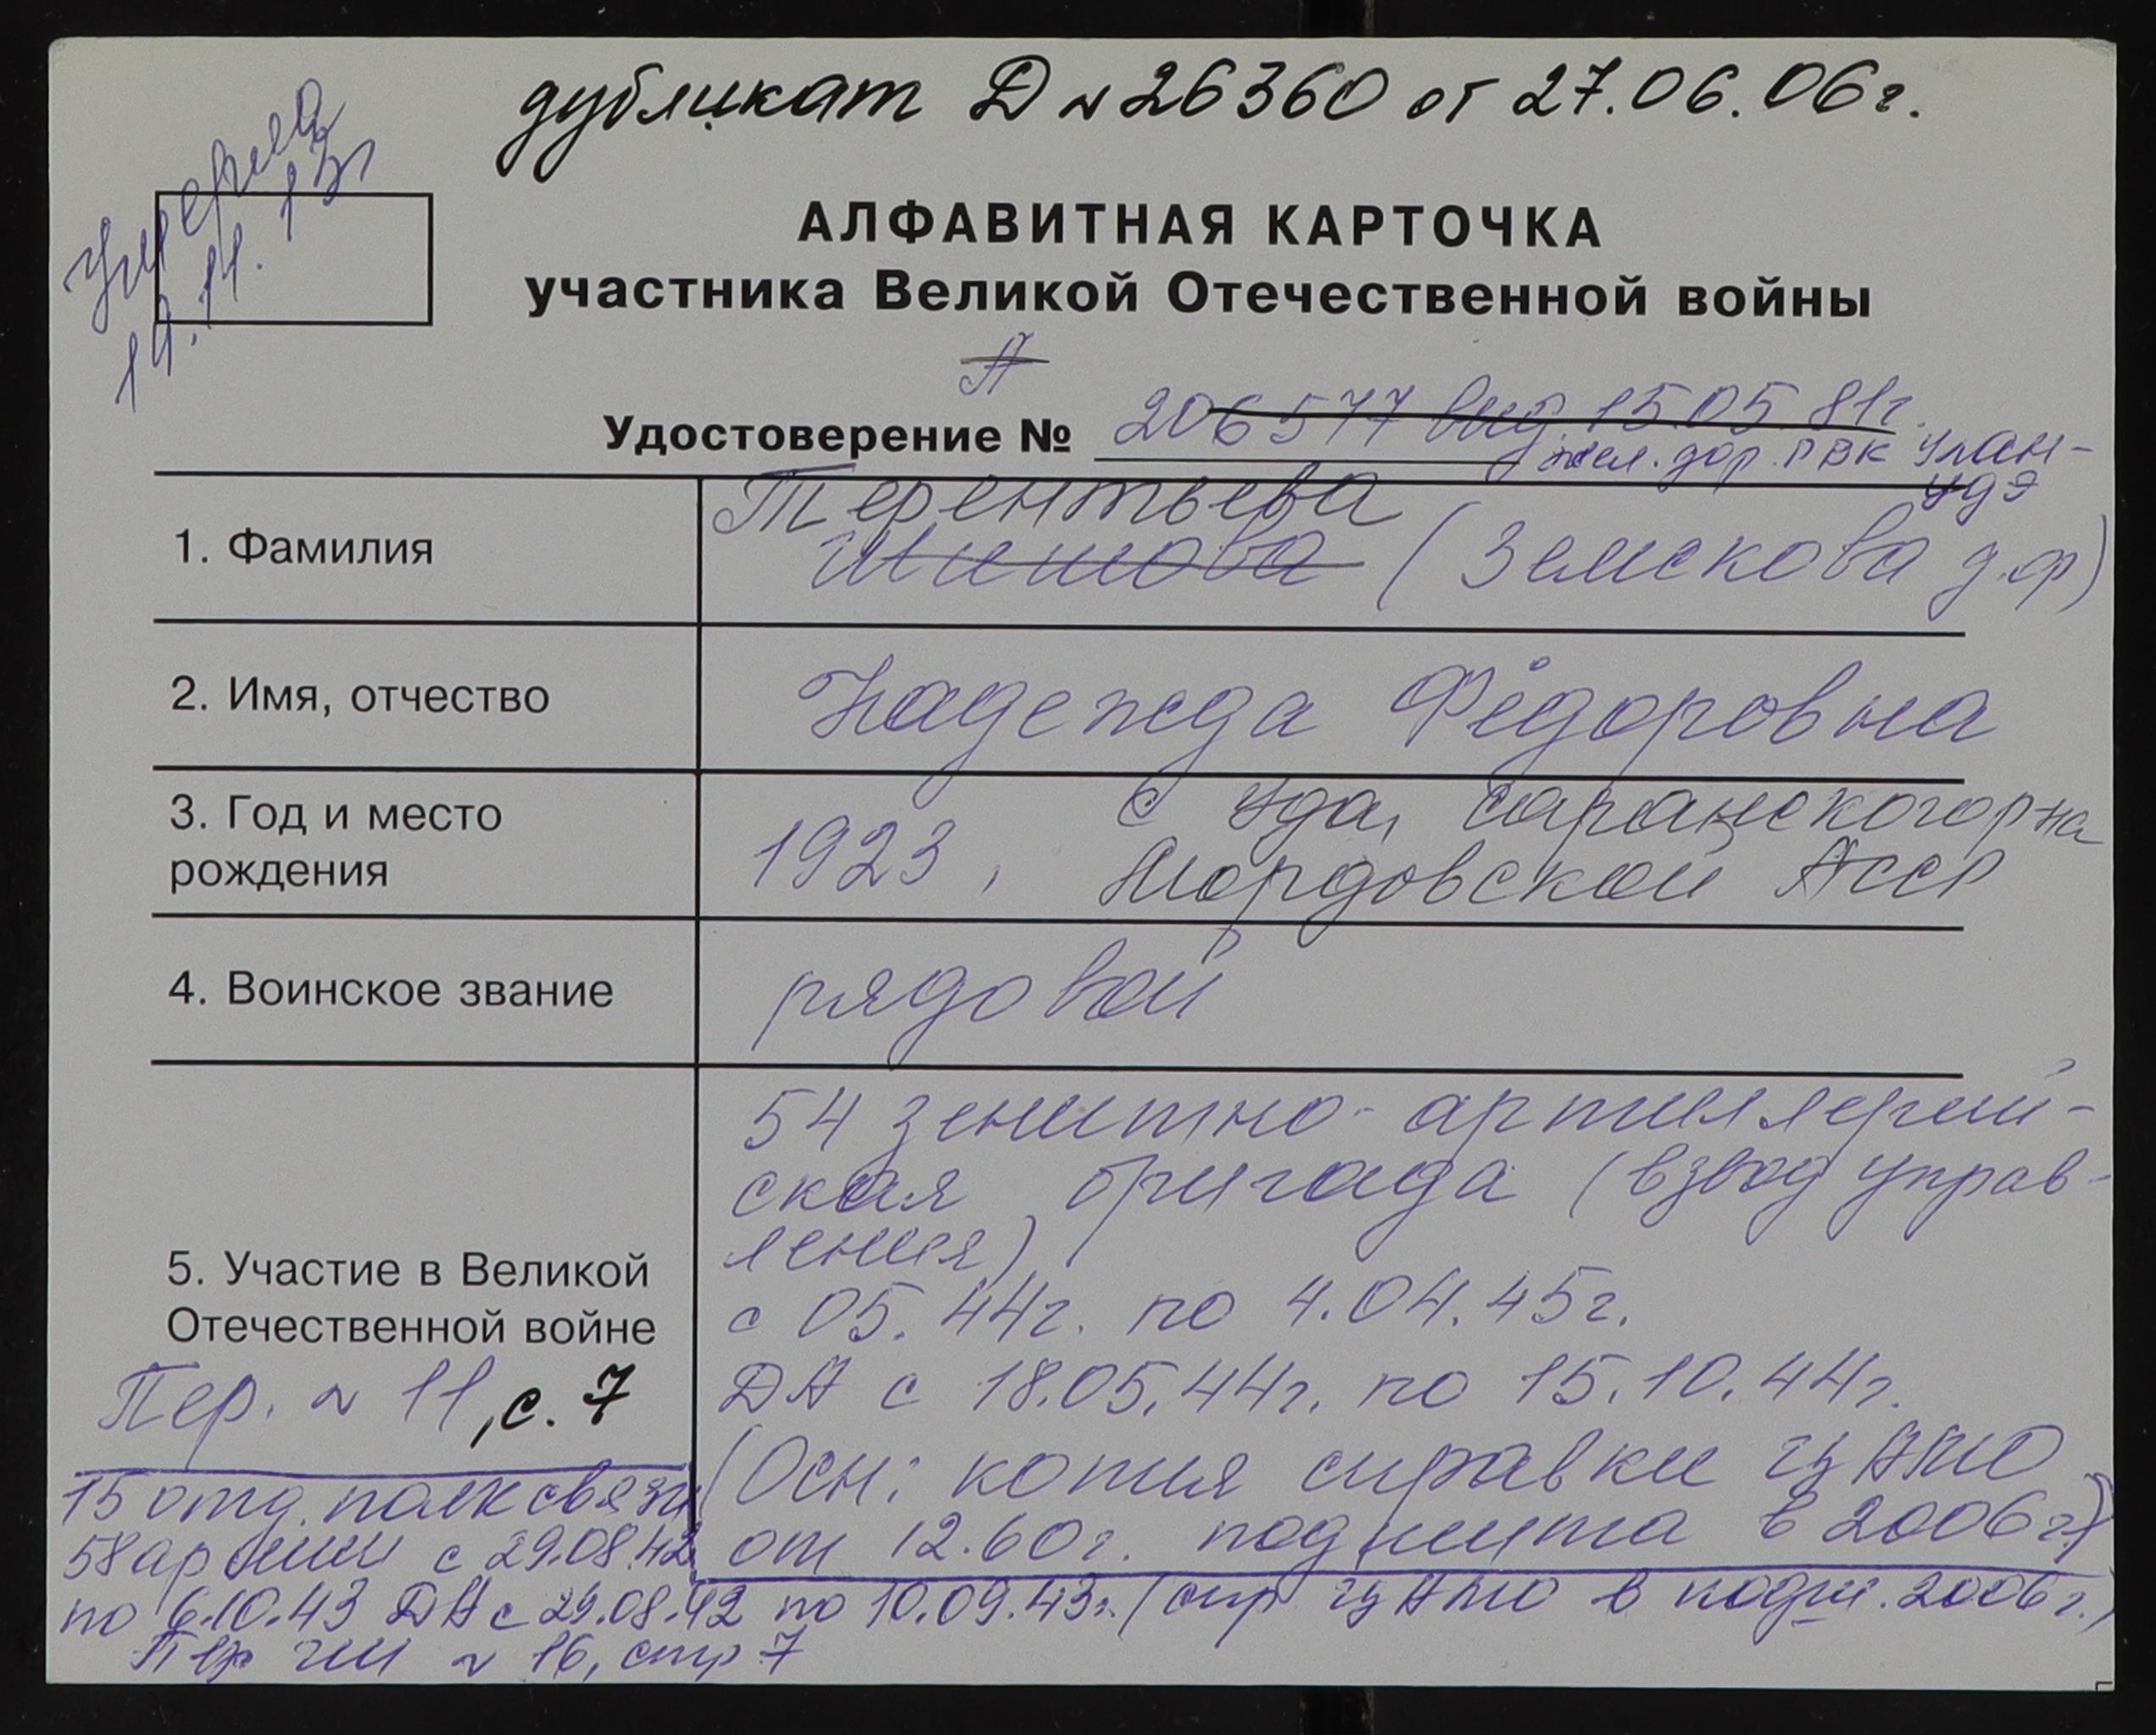 дубликат Д № 26360 от 27.06.06г.
умерла
19.11.13г
АЛФАВИТНАЯ КАРТОЧКА
участника Великой Отечественной войны
А
Удостоверение № 206577 выд. 15.05.81г.
жел. дор. РВК Улан-
Удэ
Терентьева
1. Фамилия Шишова (Земскова д.ф)
2. Имя, отчество Надежда Фёдоровна
3. Год и место рождения 1923, с Уда, Саранского р-на
Мордовской АССР
4. Воинское звание рядовой
54 зенитно-артиллерий-
ская бригада (взвод управ-
ления)
5. Участие в Великой
Отечественной войне
с 05.44г. по 4.04.45г.
ДА с 18.05.44г. по 15.10.44г.
Пер. № 11, с. 7
(Осн: копия справки ЦАМО
от 12.60г. поднята в 2006г.)
15 отд. полк связи
58 армии с 29.08.42
по 6.10.43 ДА с 29.08.42 по 10.09.43г. (спр ЦАМО в подш. 2006г.)
Пер № 16, стр 7